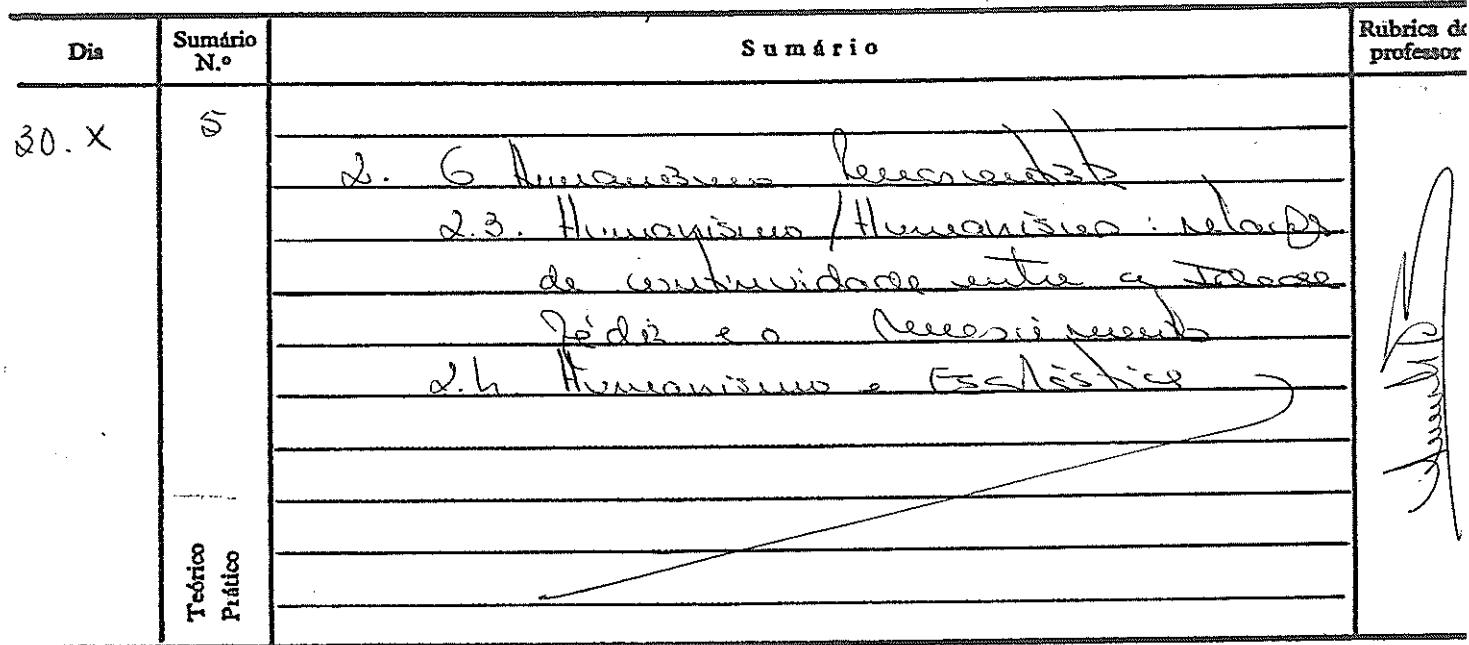 Dia
Sumário
N.º
Sumário
Rúbrica do
professor
30. X
5
2. O Humanismo Renascentista
2.3. Humanismo / Humanismo: relações
de continuidade entre a Idade
Média e o Renascimento
2.4 Humanismo e Escolástica
Teórico
Prático